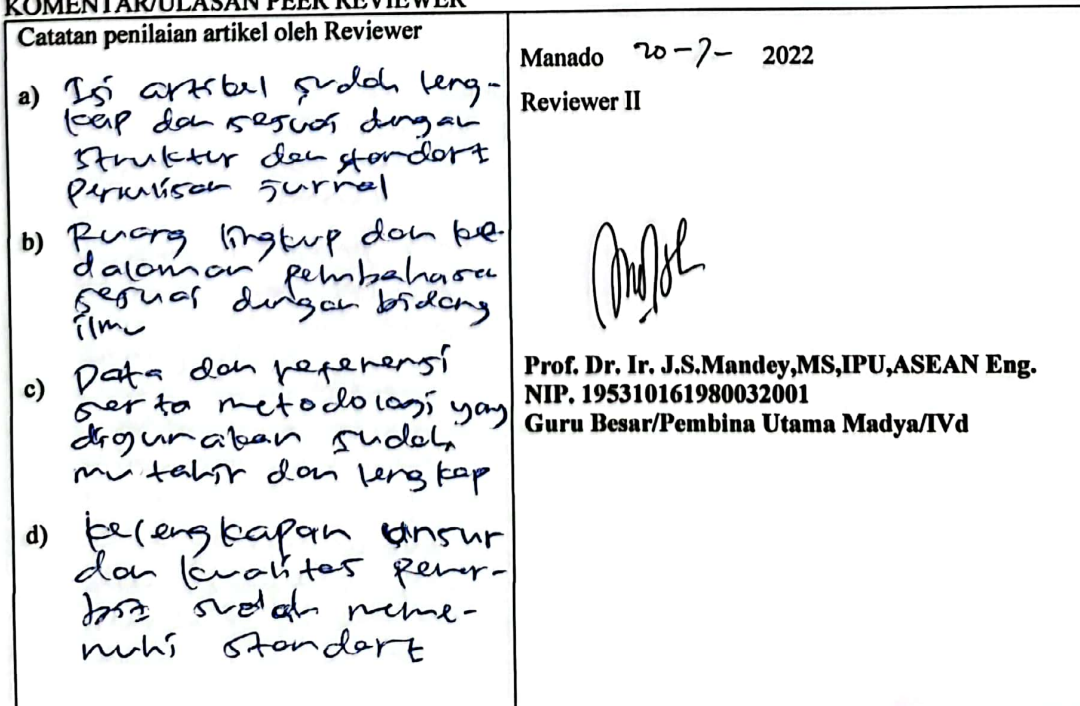 KOMENTAR/ULASAN PEER REVIEWER
Catatan penilaian artikel oleh Reviewer
a) Isi artikel sudah leng-
kap dan sesuai dengan
struktur dan standart
penulisan jurnal
b) Ruang lingkup dan ke-
dalaman pembahasan
sesuai dengan bidang
ilmu
c) Data dan referensi
serta metodologi yang
digunakan sudah
mutahir dan lengkap
d) kelengkapan unsur
dan kualitas pener-
bit sudah meme-
nuhi standart
Manado 20-7- 2022
Reviewer II
Prof. Dr. Ir. J.S.Mandey,MS,IPU,ASEAN Eng.
NIP. 195310161980032001
Guru Besar/Pembina Utama Madya/IVd